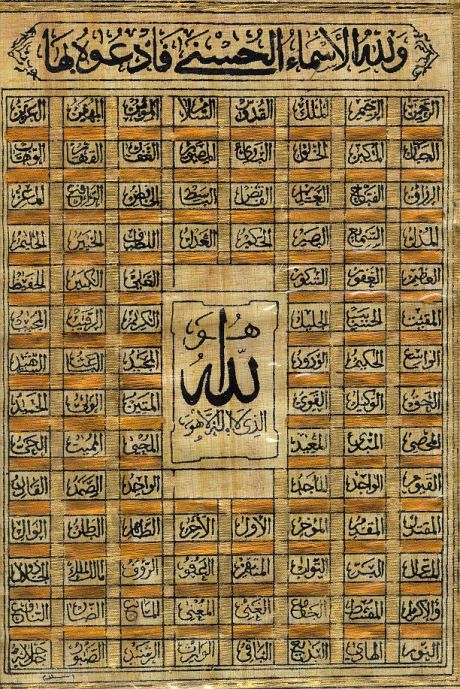 ولله الأسماء الحسنى فادعوه بها
الرحمن الرحيم الملك القدوس السلام المؤمن المهيمن العزيز
الجبار المتكبر الخالق البارئ المصور الغفار القهار الوهاب
الرزاق الفتاح العليم القابض الباسط الخافض الرافع المعز
المذل السميع البصير الحكم العدل اللطيف الخبير الحليم
العظيم الغفور الشكور العلي الكبير الحفيظ
هو
الله
الذي لا إله إلا هو
المقيت الحسيب الجليل الكريم الرقيب المجيب
الواسع الحكيم الودود المجيد الباعث الشهيد
الحق الوكيل القوي المتين الولي الحميد
المحصي المبدئ المعيد المحيي المميت الحي
القيوم الواجد الماجد الواحد الصمد القادر
المقتدر المقدم المؤخر الأول الآخر الظاهر الباطن الوالي
المتعال البر التواب المنتقم العفو الرؤف مالك الملك ذو الجلال
والإكرام المقسط الجامع الغني المغني المانع الضار النافع
النور الهادي البديع الباقي الوارث الرشيد الصبور جل جلاله